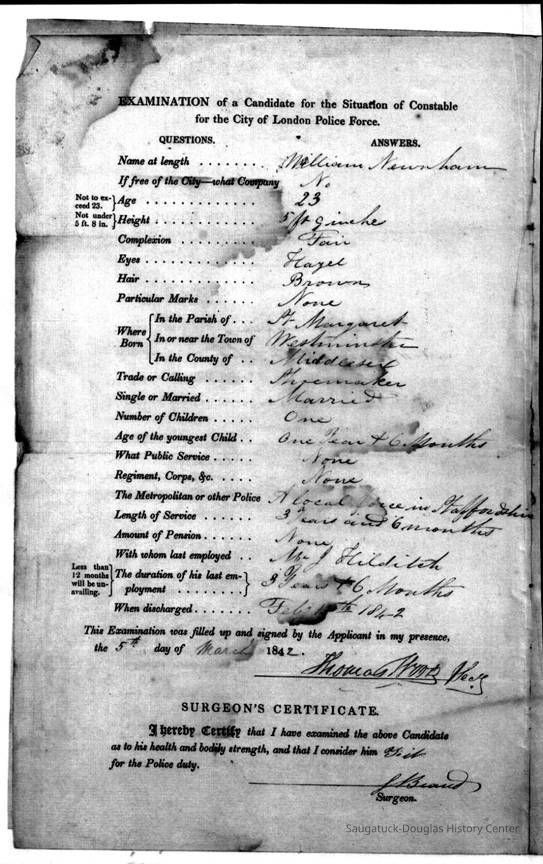 EXAMINATION of a Candidate for the Situation of Constable
for the City of London Police Force.
QUESTIONS. ANSWERS.
Name at length ........ William Newnham
If free of the City—what Company No
Not to exceed 23. } Age .......... 23
Not under 5 ft. 8 in. } Height .......... 5 ft 9 inche
Complexion ........ Fair
Eyes ........ Hazel
Hair ........ Brown
Particular Marks ...... None
Where Born { In the Parish of ... St Margaret
In or near the Town of Westminster
In the County of .. Middlesex
Trade or Calling ...... Shoemaker
Single or Married ...... Married
Number of Children ..... One
Age of the youngest Child .. One Year & 6 Months
What Public Service ..... None
Regiment, Corps, &c. ..... None
The Metropolitan or other Police A local force in Staffordshire
Length of Service ...... 3 Years and 6 months
Amount of Pension ..... None
With whom last employed .. Mr J Hilditch
Less than 12 months will be unavailing. { The duration of his last employment ........ } 3 Years & 6 Months
When discharged ........ 1842
This Examination was filled up and signed by the Applicant in my presence,
the 5th day of March 1842.
Thomas Wood
SURGEON'S CERTIFICATE.
I hereby Certify that I have examined the above Candidate
as to his health and bodily strength, and that I consider him
for the Police duty.
Surgeon.
Saugatuck-Douglas History Center